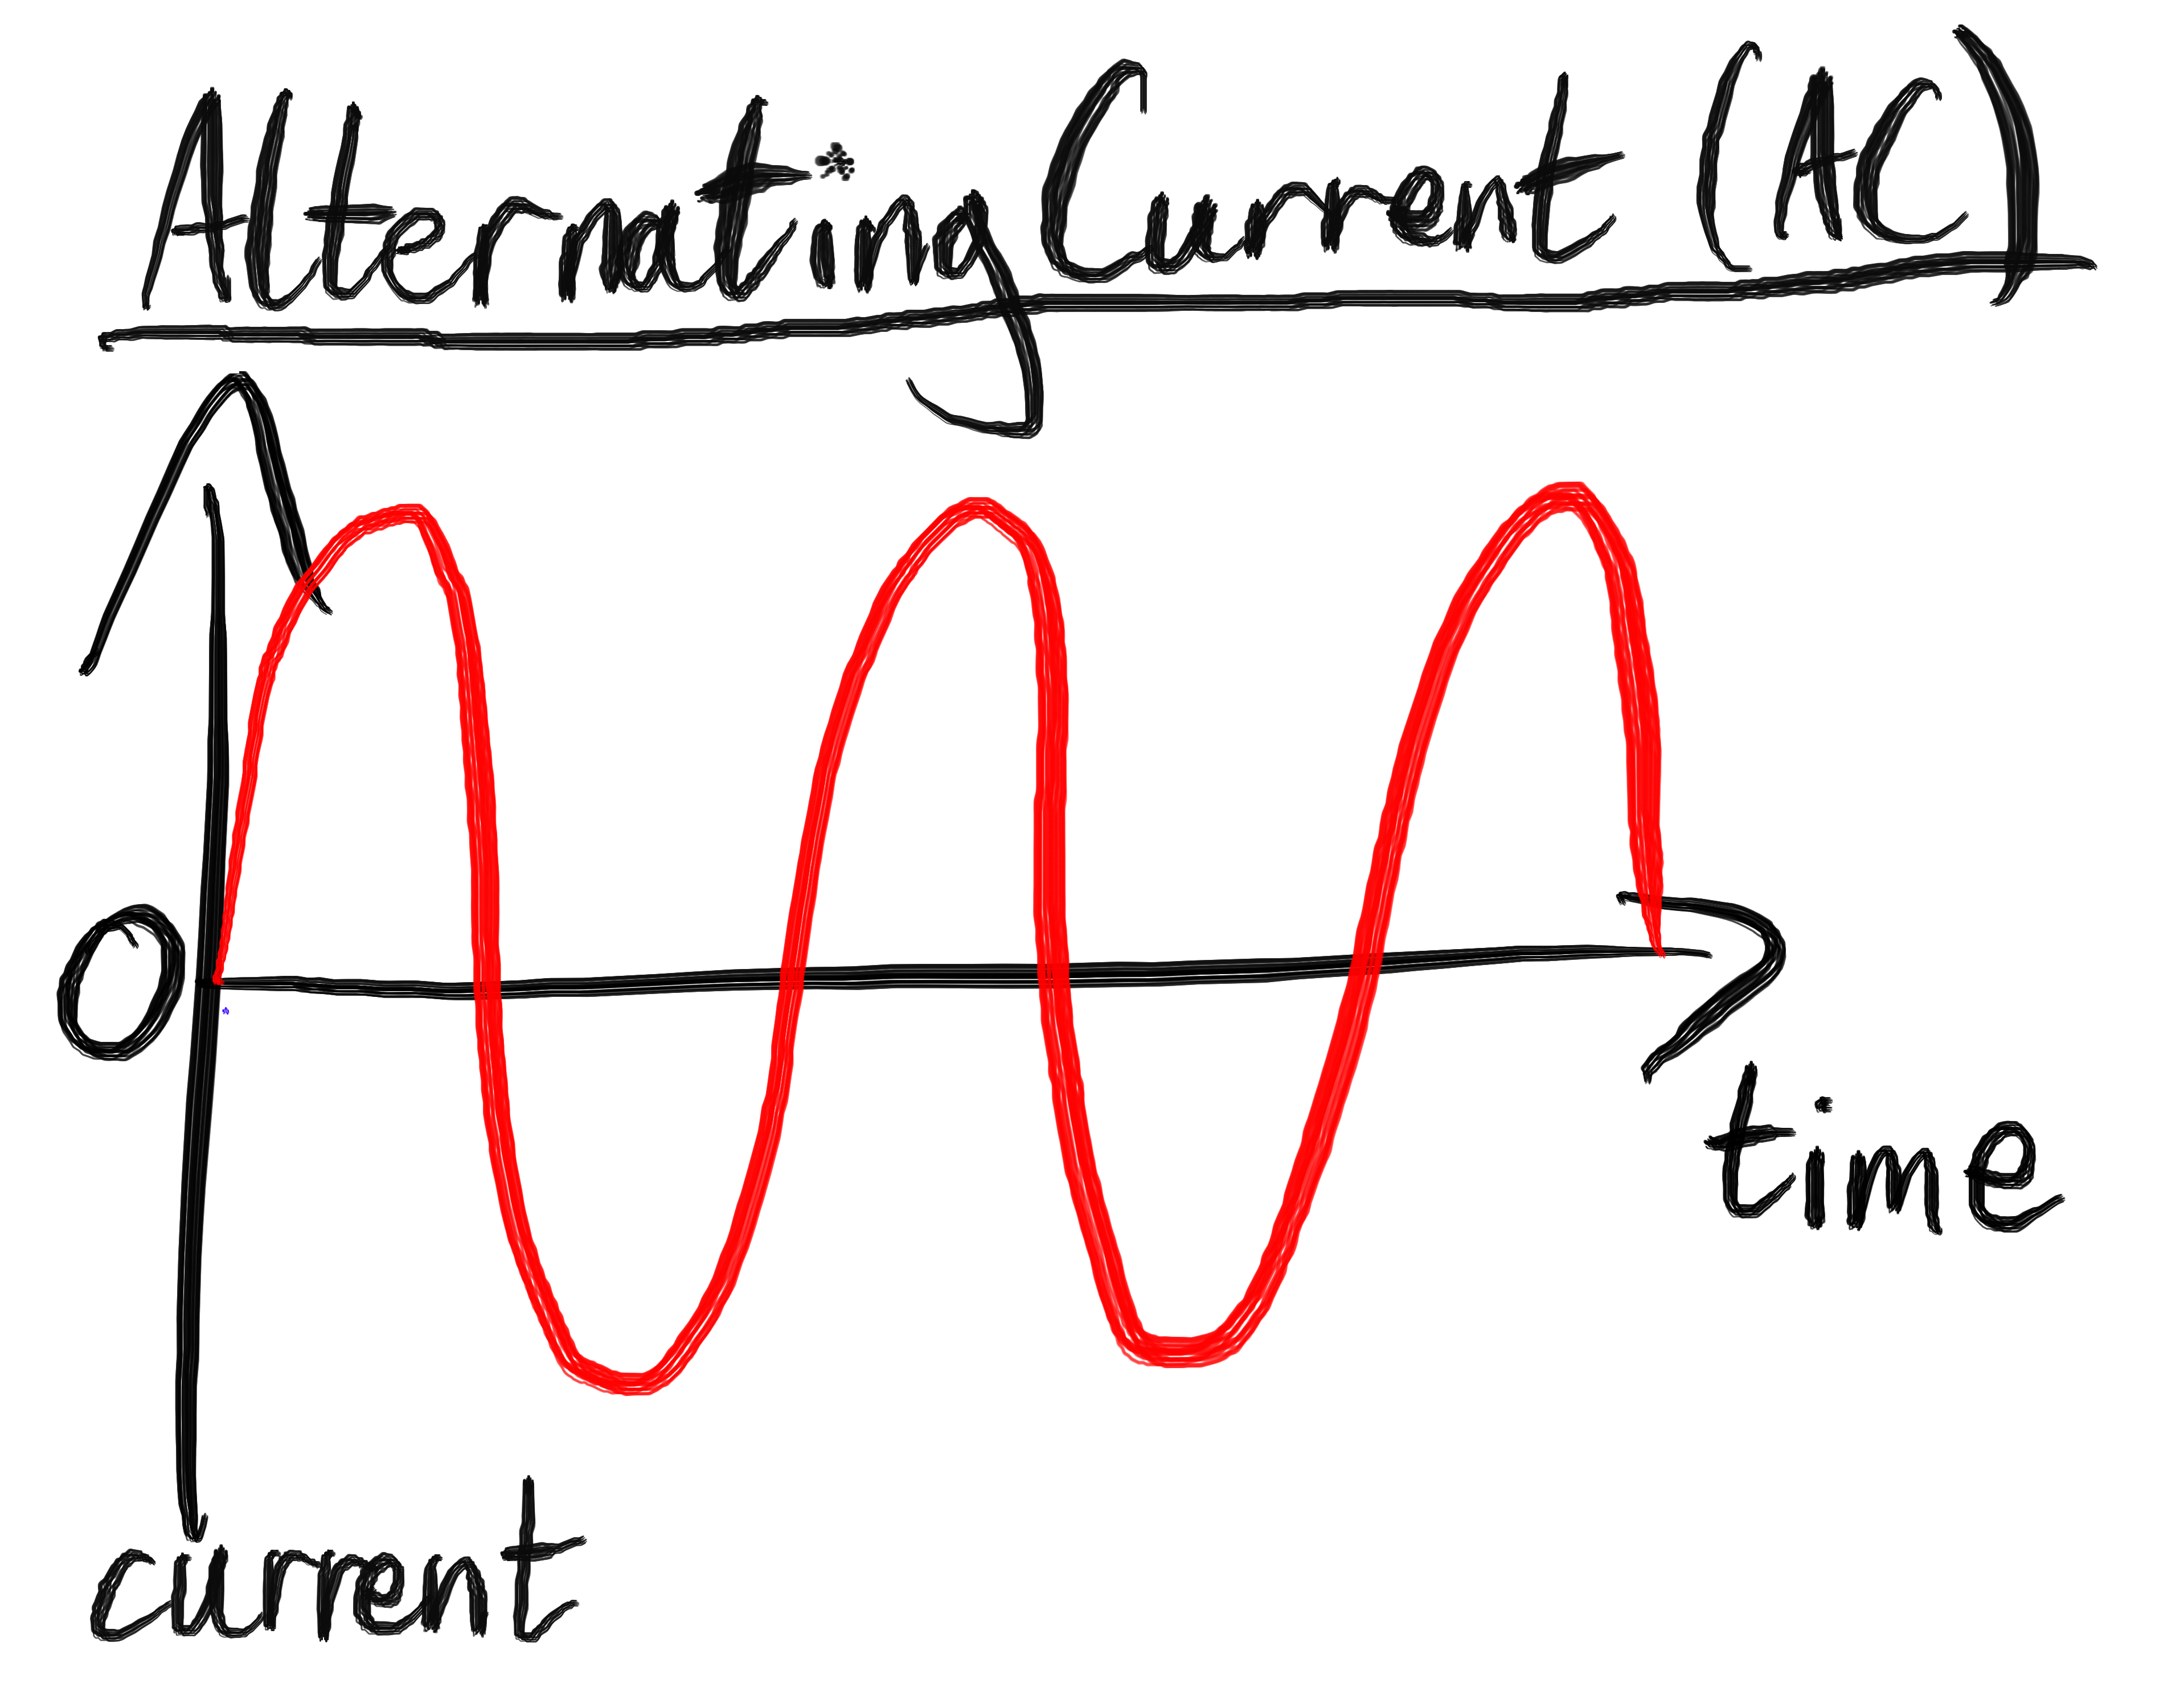 Alternating Current (AC)
0
time
current